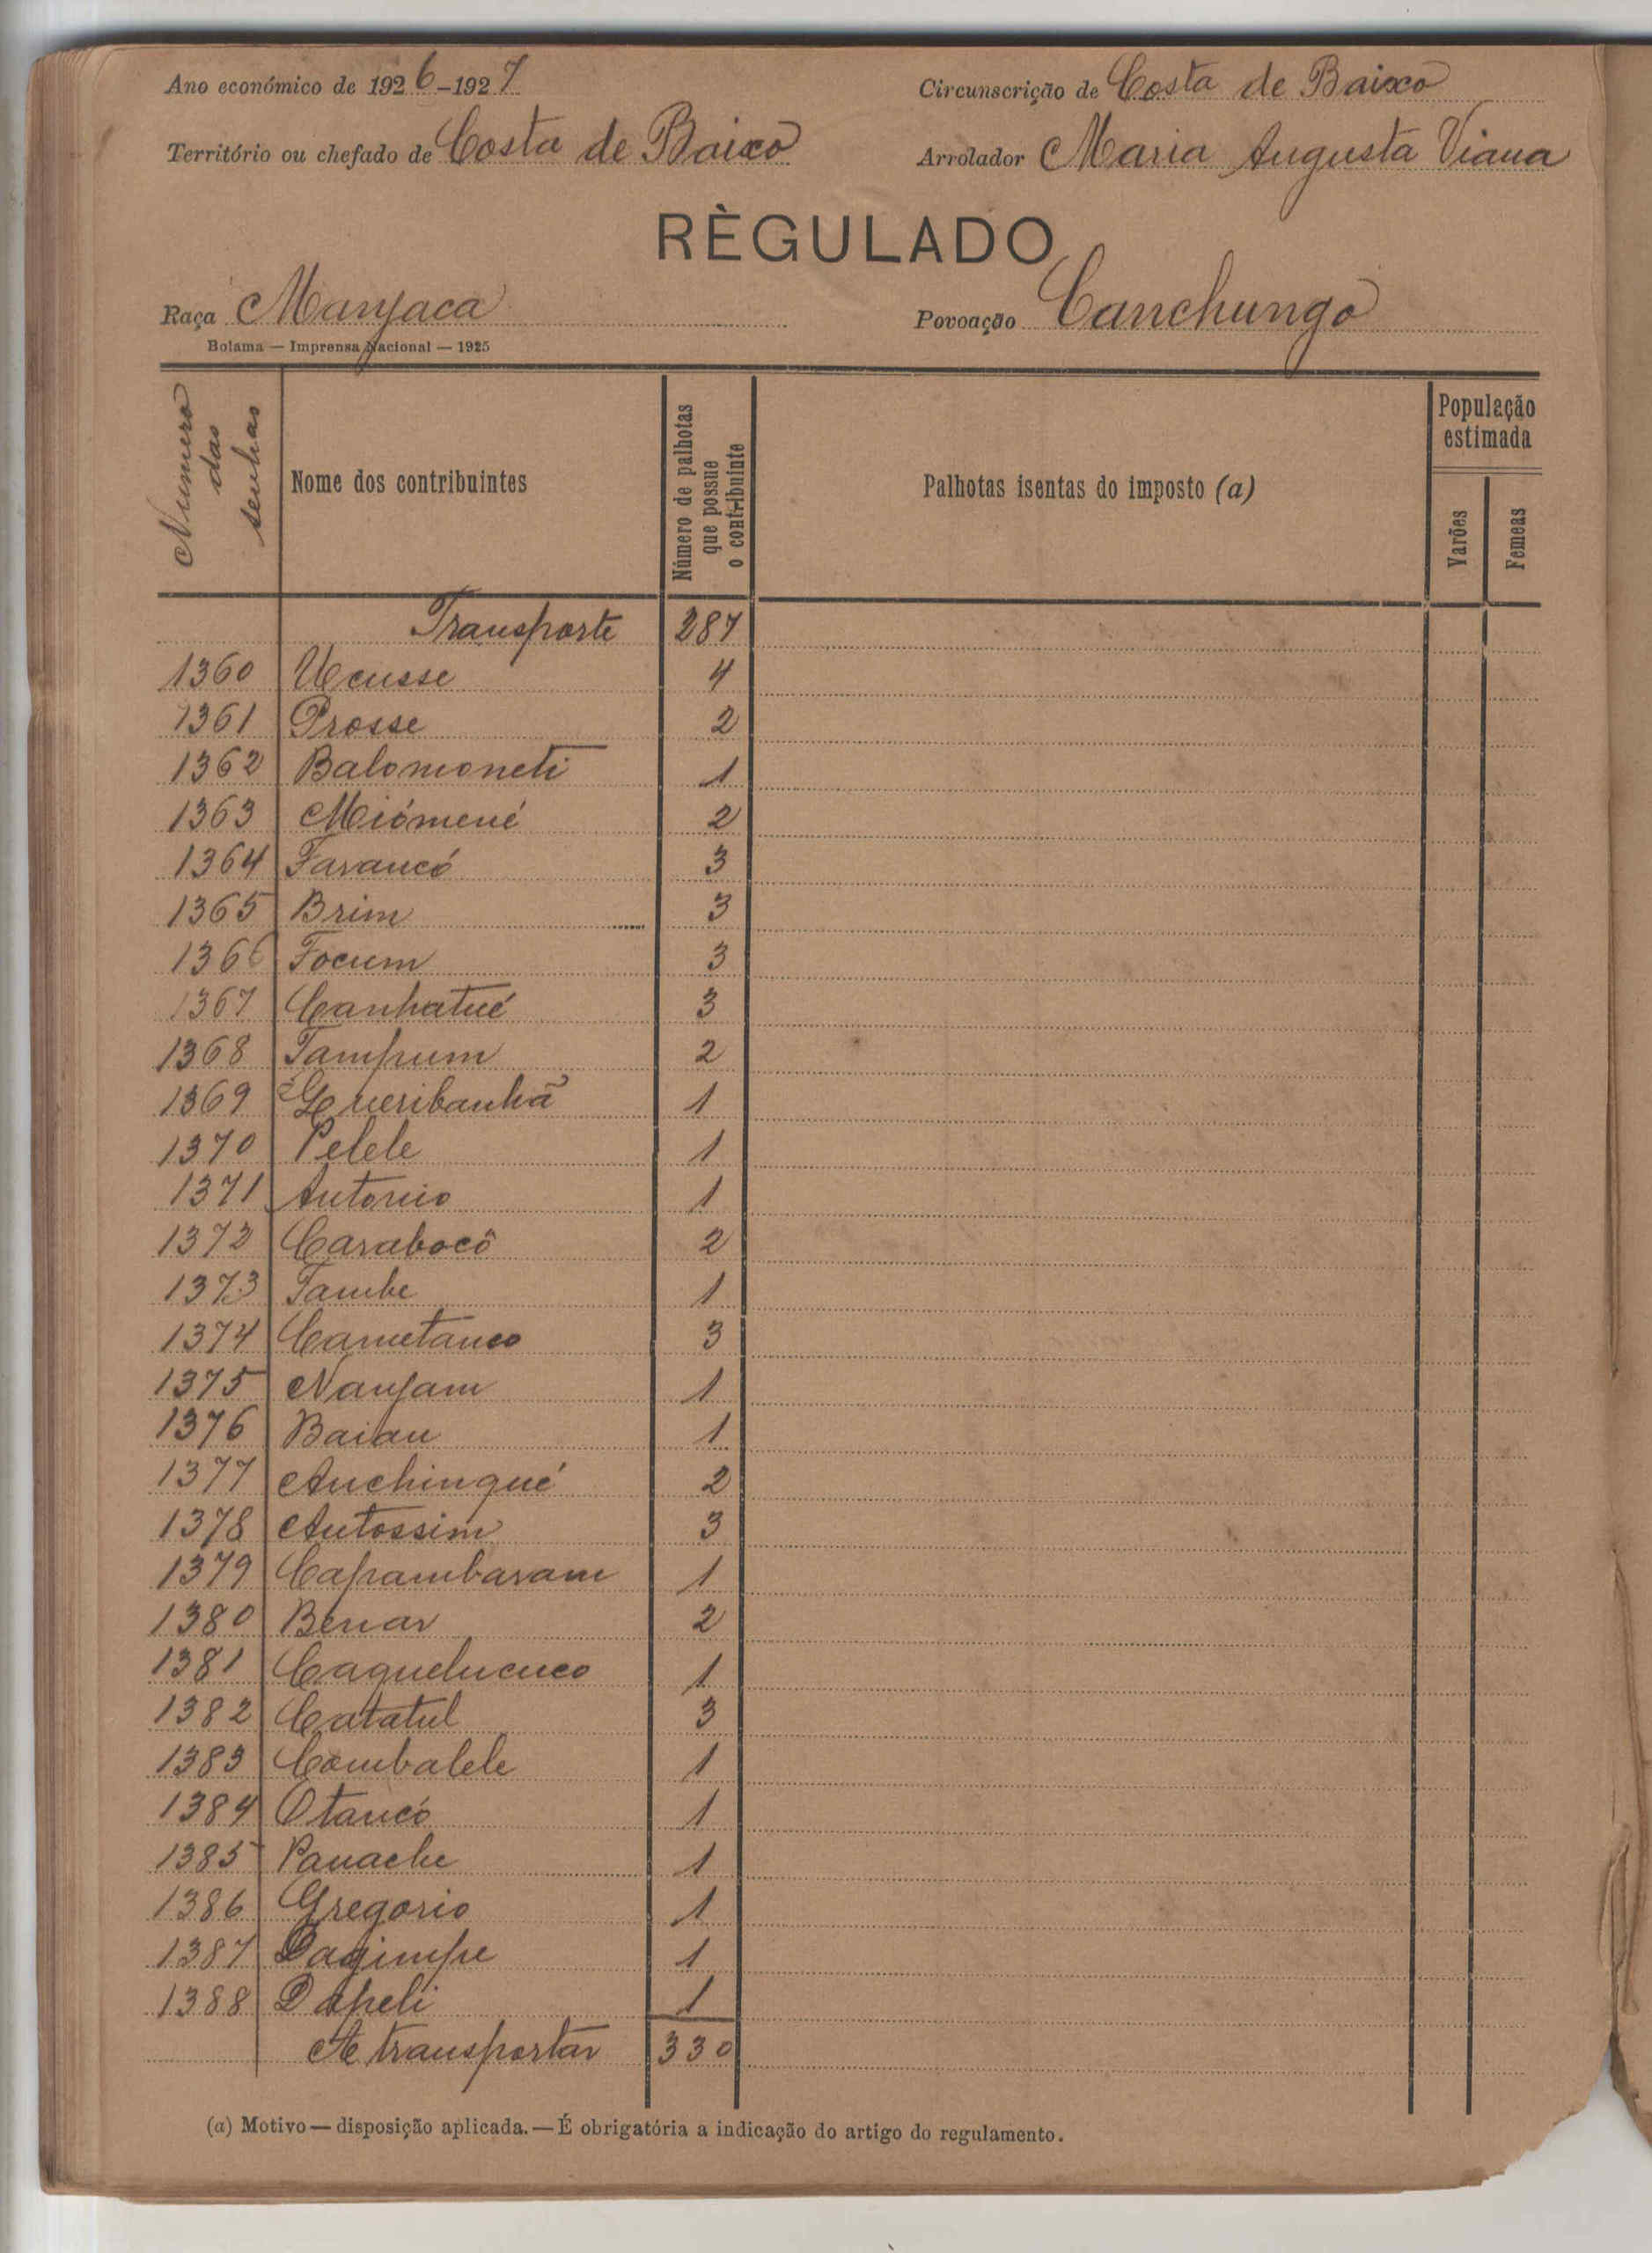 Ano económico de 1926-1927 Circunscrição de Costa de Baixo
Território ou chefado de Costa de Baixo Arrolador Maria Augusta Viana
RÈGULADO
Raça Manjaca Povoação Canchungo
Bolama — Imprensa Nacional — 1925
Numero das senhas
Nome dos contribuintes
Número de palhotas que possue o contribuinte
Palhotas isentas do imposto (a)
População estimada
Varões
Femeas
Transporte 287
1360 Ucusse 4
1361 Prosse 2
1362 Balomoneti 1
1363 Miómené 2
1364 Farancó 3
1365 Brim 3
1366 Focum 3
1367 Canhatué 3
1368 Tampum 2
1369 Gueribanhã 1
1370 Pelele 1
1371 Antonio 1
1372 Carabocô 2
1373 Tambe 1
1374 Cametanco 3
1375 Nanjam 1
1376 Baian 1
1377 Anchingué 2
1378 Antossim 3
1379 Capambaram 1
1380 Benar 2
1381 Caquelucuco 1
1382 Catatul 3
1383 Combalele 1
1384 Otancó 1
1385 Panache 1
1386 Gregorio 1
1387 Dagimpe 1
1388 Dapeli 1
A transportar 330
(a) Motivo — disposição aplicada. — É obrigatória a indicação do artigo do regulamento.